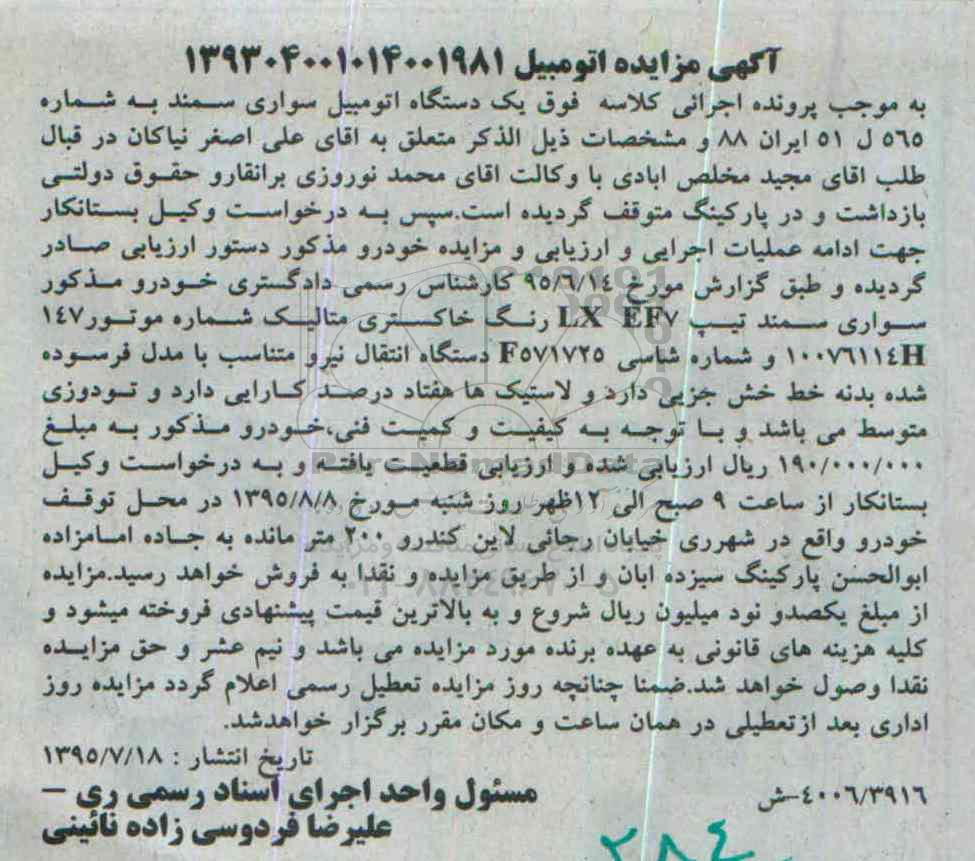 آگهی مزایده اتومبیل ۱۳۹۳۰۴۰۰۱۰۱۴۰۰۱۹۸۱
به موجب پرونده اجرائی کلاسه فوق یک دستگاه اتومبیل سواری سمند به شماره
۵۶۵ ل ۵۱ ایران ۸۸ و مشخصات ذیل الذکر متعلق به اقای علی اصغر نیاکان در قبال
طلب اقای مجید مخلص ابادی با وکالت اقای محمد نوروزی برانقارو حقوق دولتی
بازداشت و در پارکینگ متوقف گردیده است.سپس به درخواست وکیل بستانکار
جهت ادامه عملیات اجرایی و ارزیابی و مزایده خودرو مذکور دستور ارزیابی صادر
گردیده و طبق گزارش مورخ ۹۵/۶/۱۴ کارشناس رسمی دادگستری خودرو مذکور
سواری سمند تیپ LX EF۷ رنگ خاکستری متالیک شماره موتور۱۴۷
۱۰۰۷۶۱۱۴H و شماره شاسی F۵۷۱۷۲۵ دستگاه انتقال نیرو متناسب با مدل فرسوده
شده بدنه خط خش جزیی دارد و لاستیک ها هفتاد درصد کارایی دارد و تودوزی
متوسط می باشد و با توجه به کیفیت و کمیت فنی،خودرو مذکور به مبلغ
۱۹۰/۰۰۰/۰۰۰ ریال ارزیابی شده و ارزیابی قطعیت یافته و به درخواست وکیل
بستانکار از ساعت ۹ صبح الی ۱۲ظهر روز شنبه مورخ ۱۳۹۵/۸/۸ در محل توقف
خودرو واقع در شهرری خیابان رجائی لاین کندرو ۲۰۰ متر مانده به جاده امامزاده
ابوالحسن پارکینگ سیزده ابان و از طریق مزایده و نقدا به فروش خواهد رسید.مزایده
از مبلغ یکصدو نود میلیون ریال شروع و به بالاترین قیمت پیشنهادی فروخته میشود و
کلیه هزینه های قانونی به عهده برنده مورد مزایده می باشد و نیم عشر و حق مزایده
نقدا وصول خواهد شد.ضمنا چنانچه روز مزایده تعطیل رسمی اعلام گردد مزایده روز
اداری بعد ازتعطیلی در همان ساعت و مکان مقرر برگزار خواهدشد.
تاریخ انتشار : ۱۳۹۵/۷/۱۸
۴۰۰۶/۳۹۱۶-ش
مسئول واحد اجرای اسناد رسمی ری –
علیرضا فردوسی زاده نائینی
۲۸۴